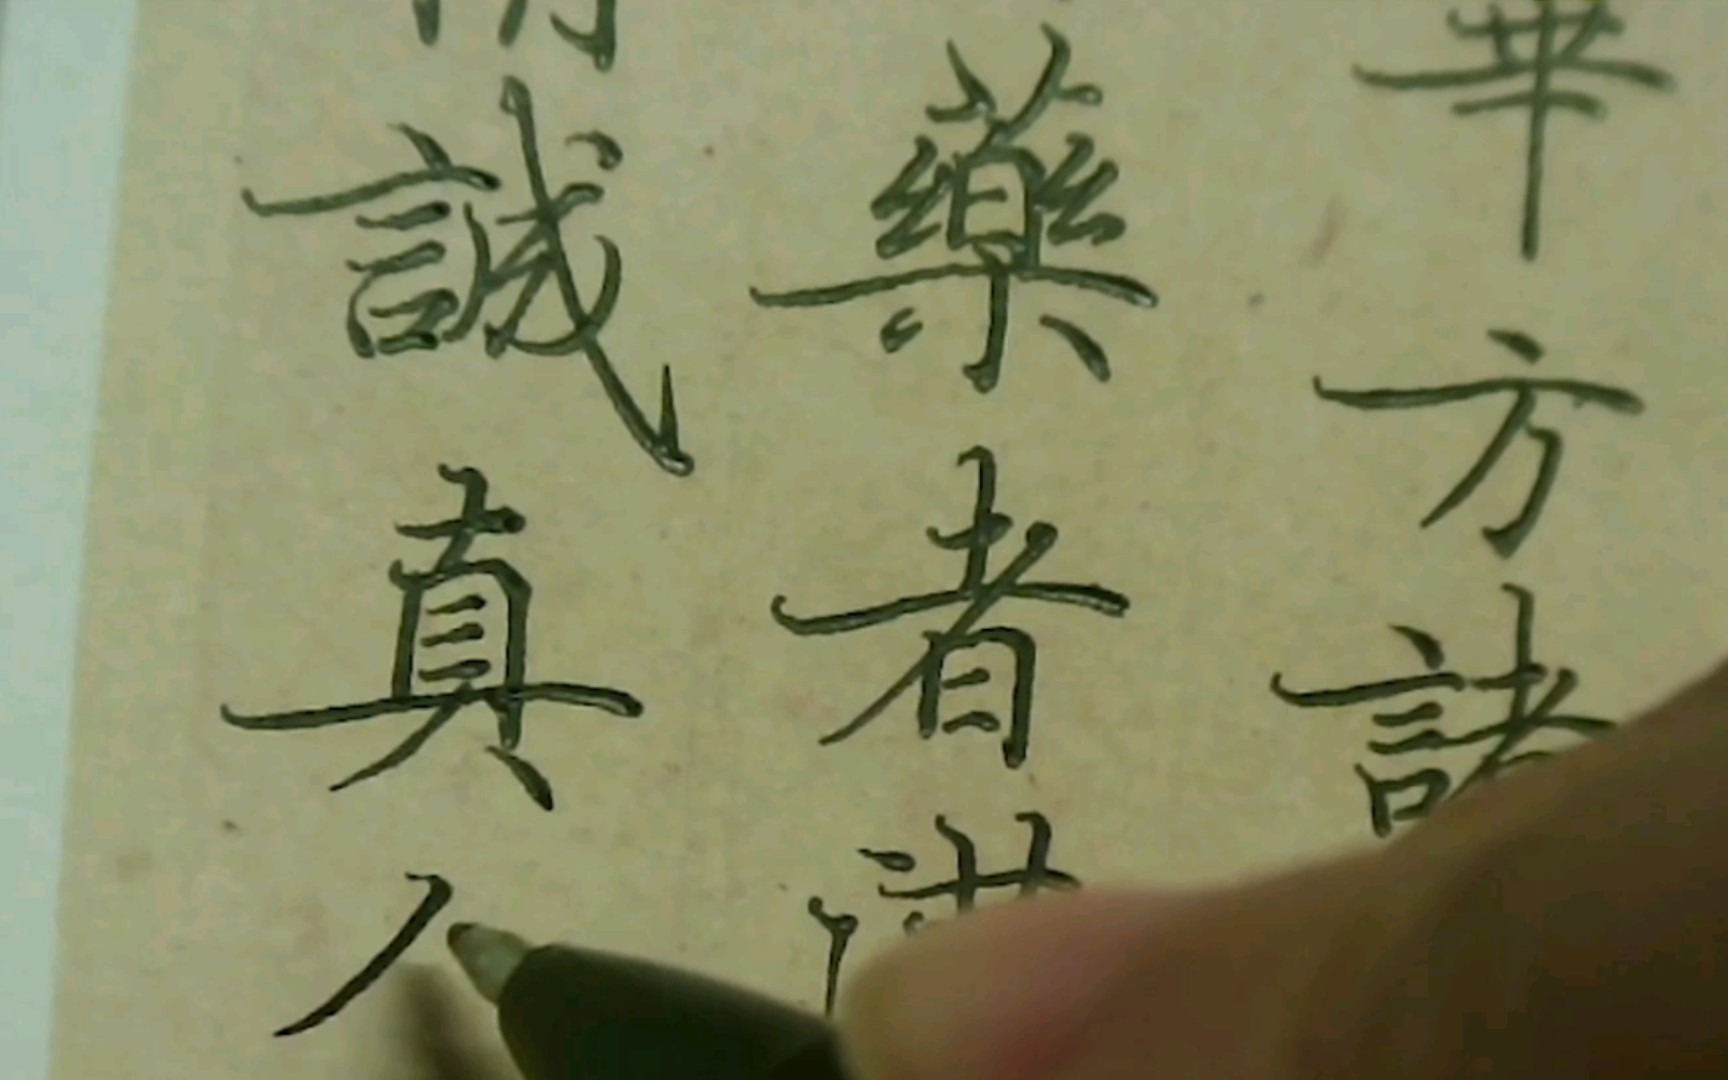 華方諸
藥者
誠真人